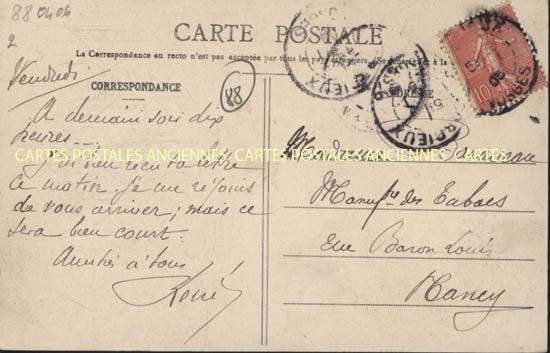 88 04 06
2
CARTE POSTALE
La Correspondance au recto n'est pas acceptée par tous les pays étrangers. Se renseigner à la
CORRESPONDANCE
88
Vendredi
A demain soir dix
heures...
J'ai bien reçu ta lettre
ce matin. Je me rejouis
de vous arriver; mais ce
sera bien court.
Amitiés à tous
René
Manuf^re des Tabacs
Rue Baron Louis
Nancy
CARTES POSTALES ANCIENNES CARTES POSTALES ANCIENNES CARTES POSTALES ANCIENNES
10